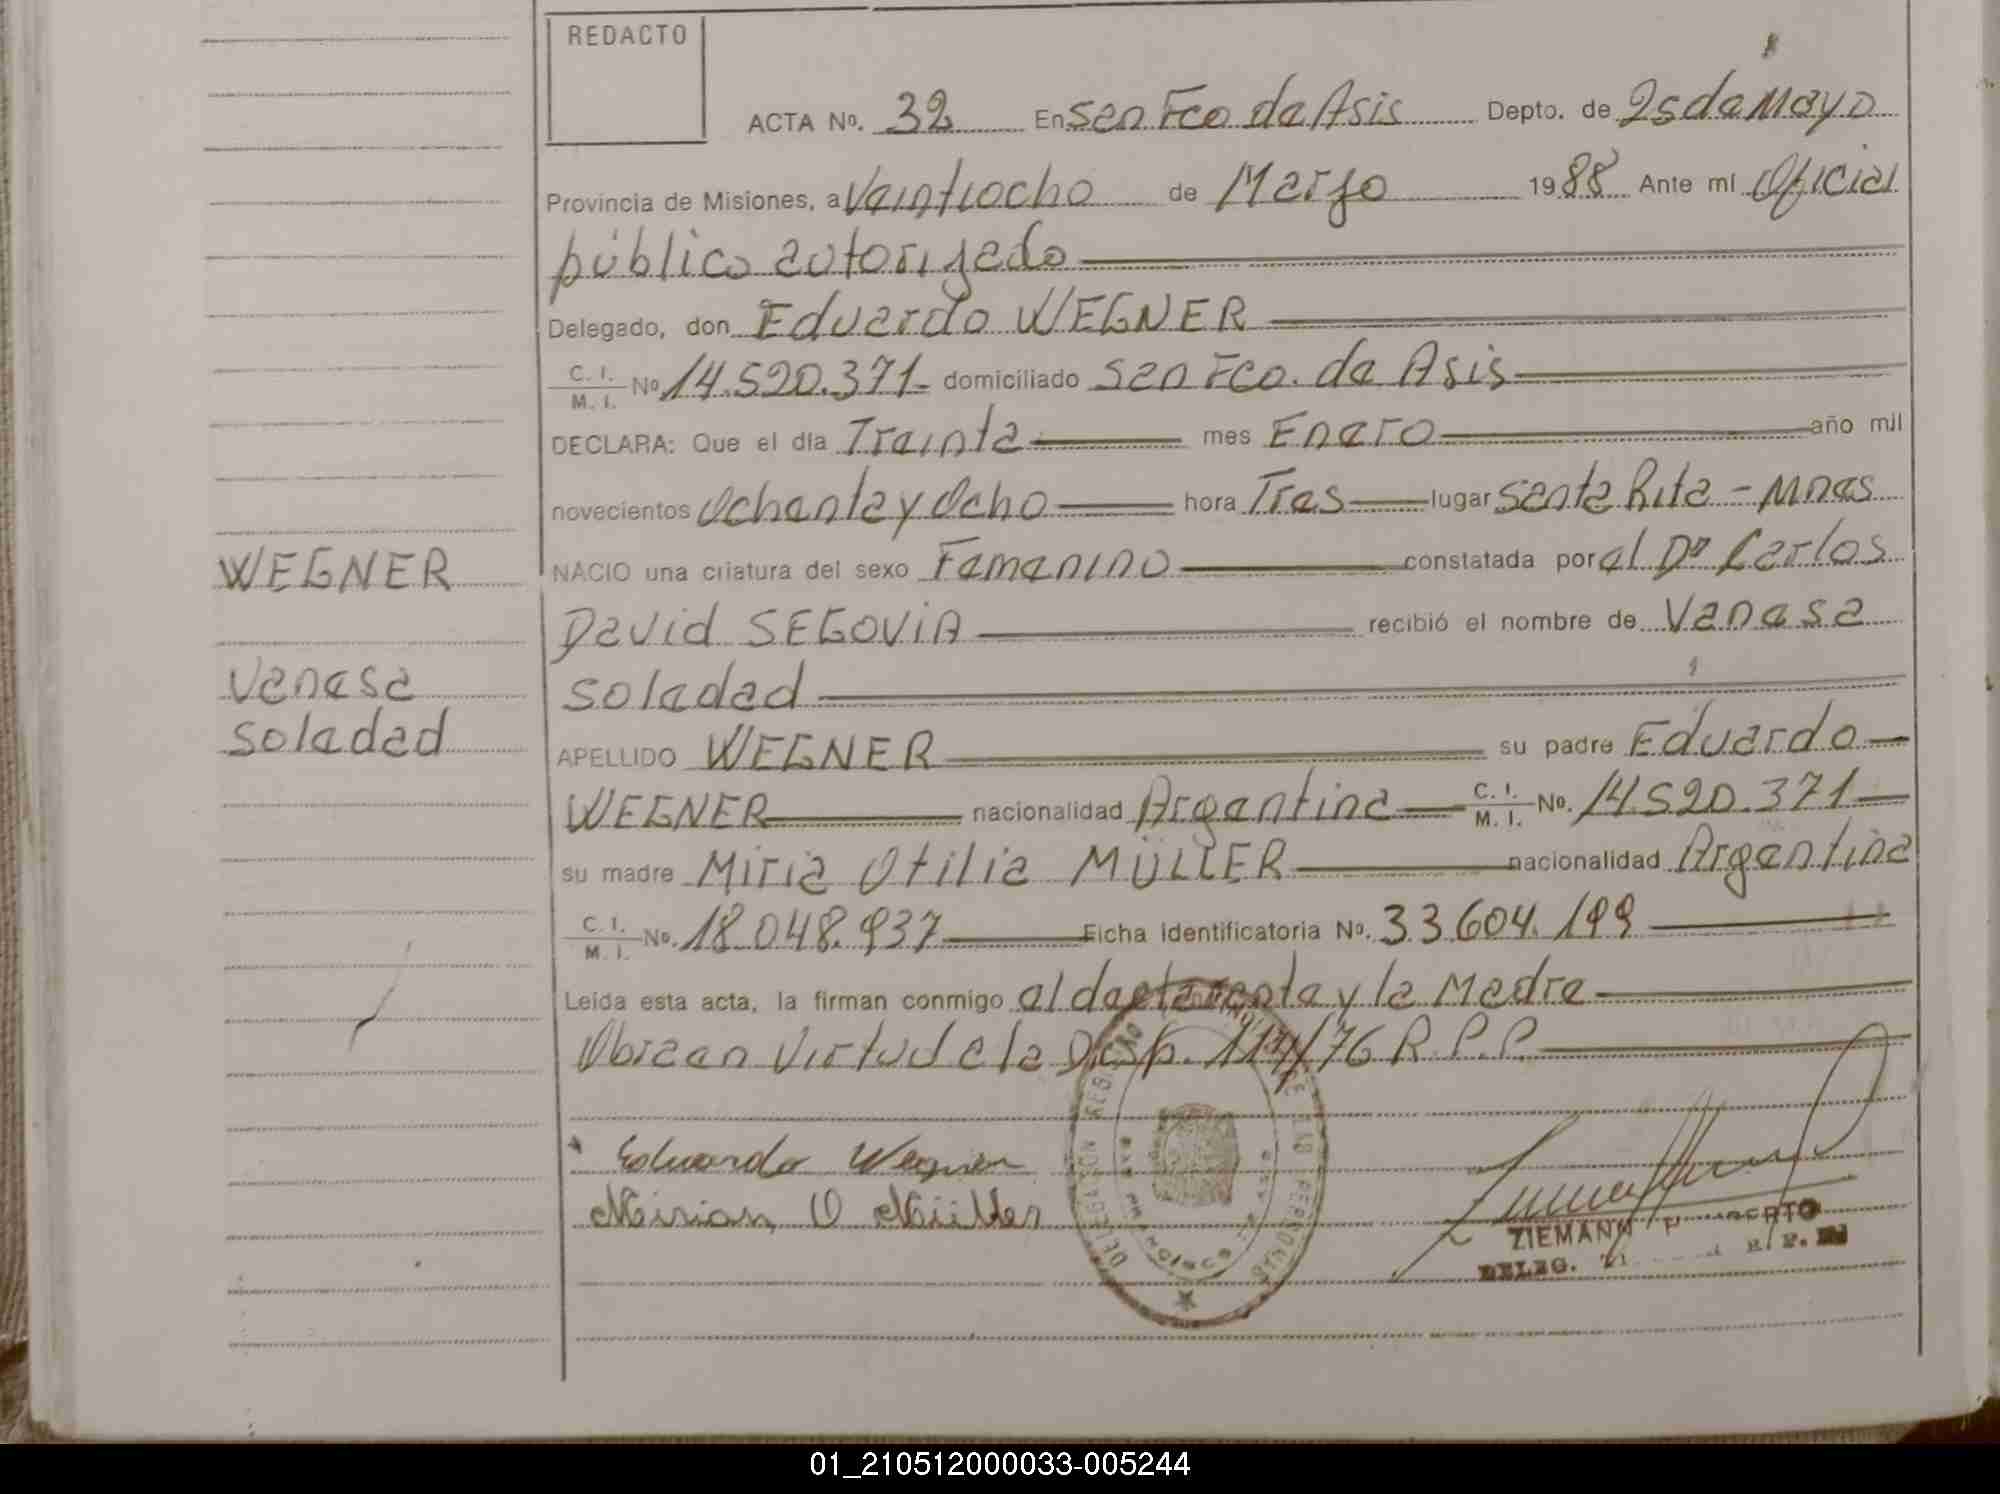 REDACTO
ACTA Nº. 32 En San Fco de Asis Depto. de 25 de Mayo
Provincia de Misiones, a Veintiocho de Marzo 1988 Ante mi Oficial
público autorizado
Delegado, don Eduardo WEGNER
C. I. / M. I. Nº 14.520.371 domiciliado San Fco. de Asis
DECLARA: Que el día Treinta mes Enero año mil
novecientos Ochenta y Ocho hora Tres lugar Santa Rita - Mnes
NACIO una criatura del sexo Femenino constatada por el Dr Carlos
David SEGOVIA recibió el nombre de Vanesa
Soledad
APELLIDO WEGNER su padre Eduardo
WEGNER nacionalidad Argentina C. I. / M. I. Nº. 14.520.371
su madre Miria Otilia MÜLLER nacionalidad Argentina
C. I. / M. I. Nº. 18.048.937 Ficha identificatoria Nº. 33.604.199
Leída esta acta, la firman conmigo el declarante y la Madre
Obra en Virtud a la Disp. /76 R.P.P.
Eduardo Wegner
Mirian O Müller
WEGNER
Vanesa
Soledad
DELEGACION
SAN FRANCISCO DE ASIS
DE LAS PERSONAS
ZIEMANN
DELEG.
01_210512000033-005244